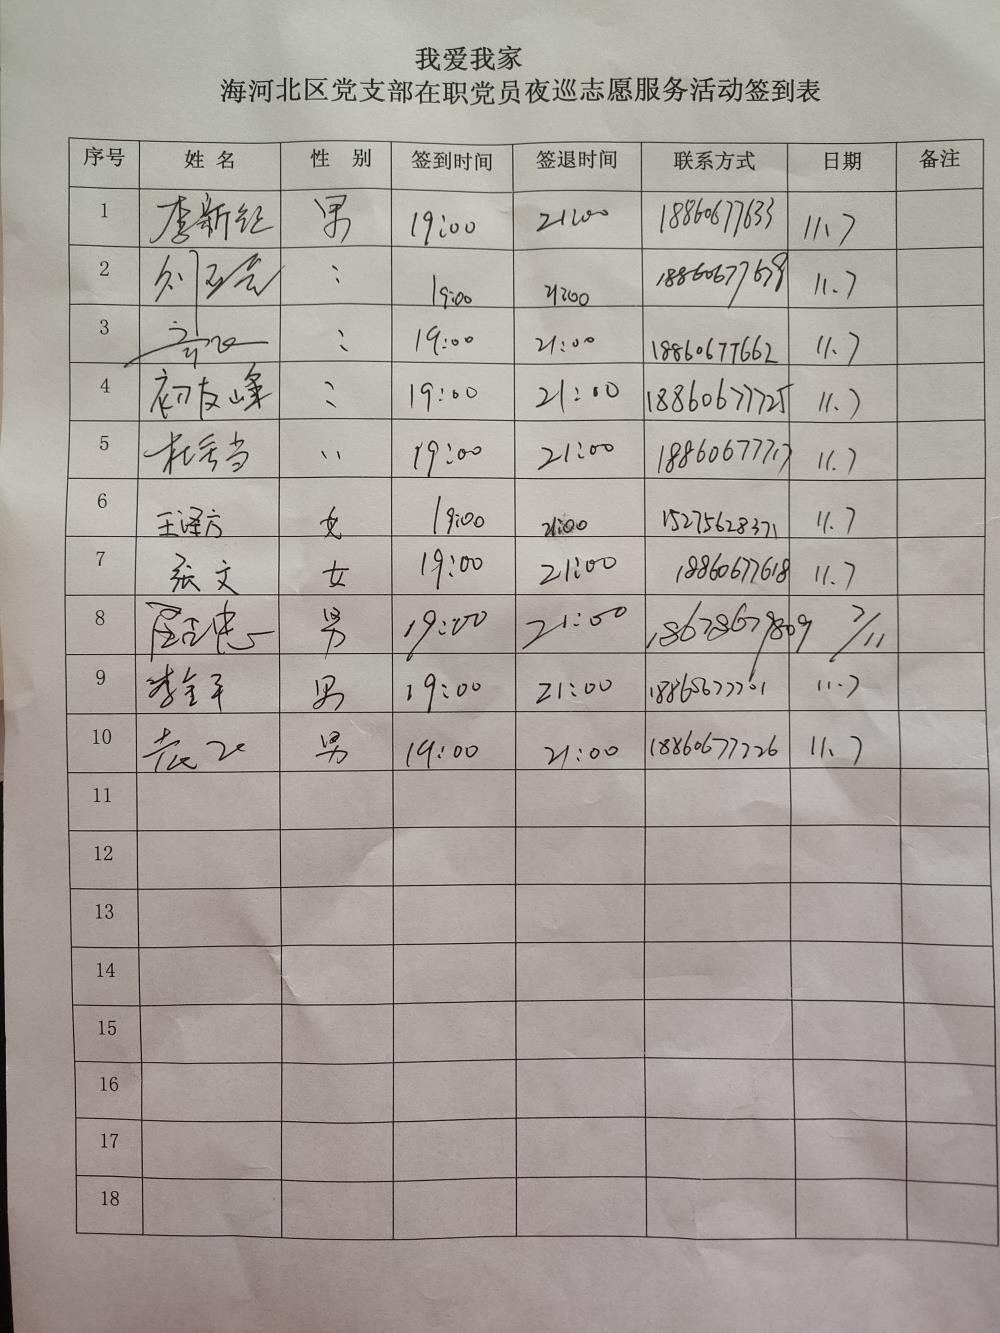 我爱我家
海河北区党支部在职党员夜巡志愿服务活动签到表
序号 姓名 性别 签到时间 签退时间 联系方式 日期 备注
1 李新 男 19:00 21:00 18860677633 11.7
2 刘 〃 19:00 21:00 1886067767 11.7
3 〃 19:00 21:00 18860677662 11.7
4 初友峰 〃 19:00 21:00 18860677725 11.7
5 杜 〃 19:00 21:00 18860677717 11.7
6 王译方 女 19:00 21:00 15275628371 11.7
7 张文 女 19:00 21:00 18860677618 11.7
8 男 19:00 21:00 18678679809 7/11
9 李金平 男 19:00 21:00 11.7
10 男 19:00 21:00 18860677726 11.7
11
12
13
14
15
16
17
18